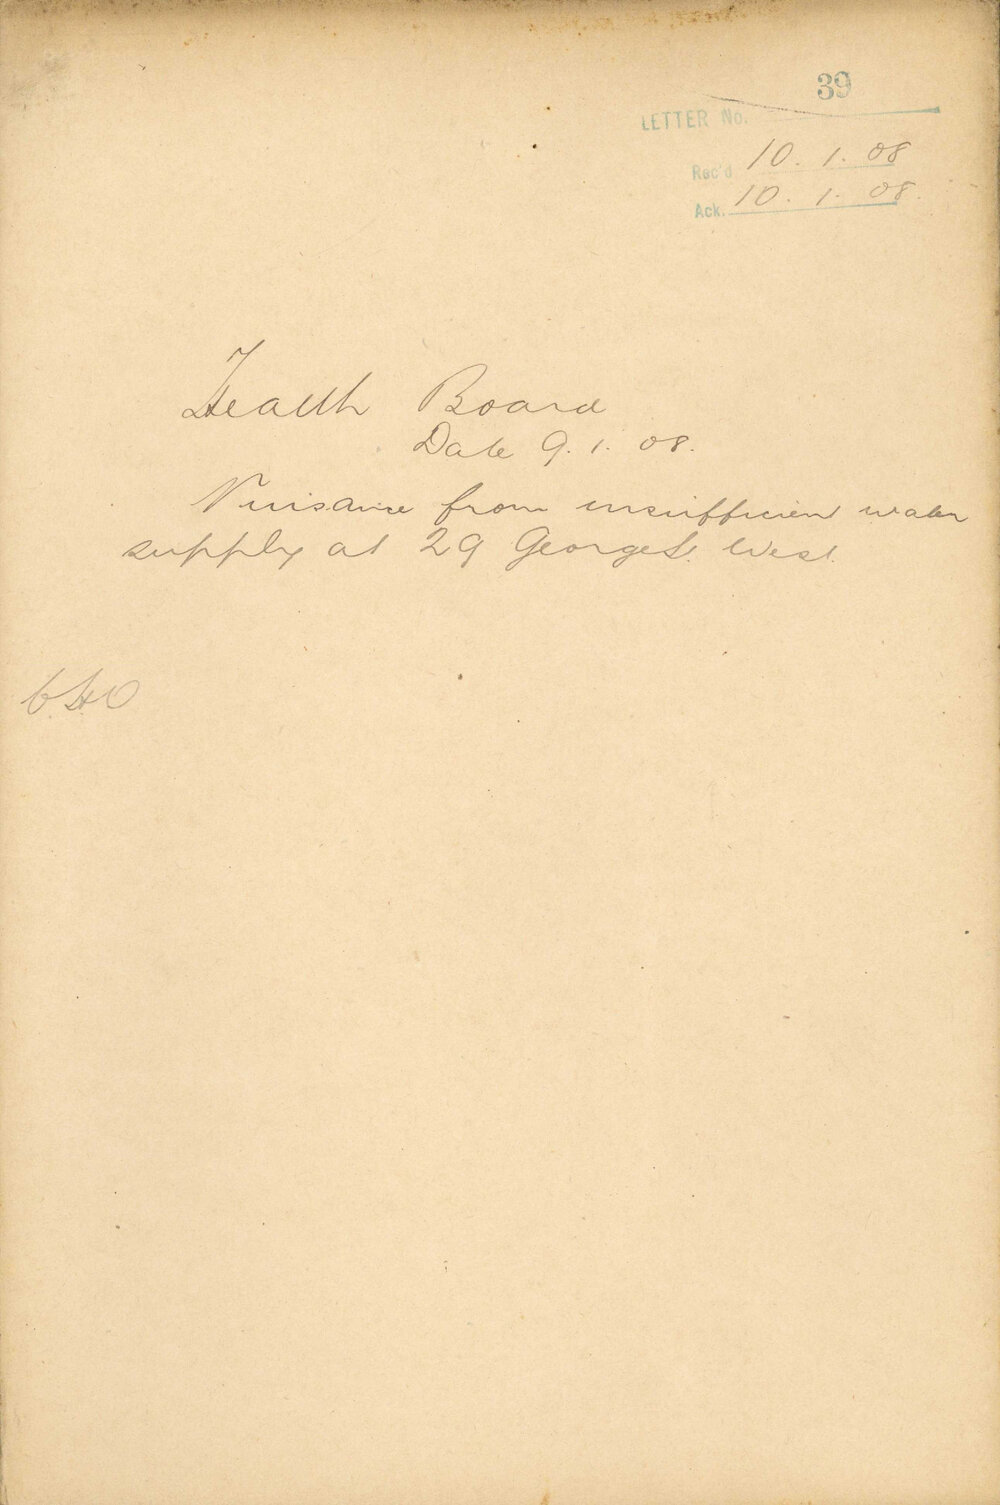 39
LETTER No.
Rec'd 10. 1. 08
Ack. 10. 1. 08.
Health Board
Date 9. 1. 08.
Nuisance from insufficient water
supply at 29 George St. West.
C.H.O